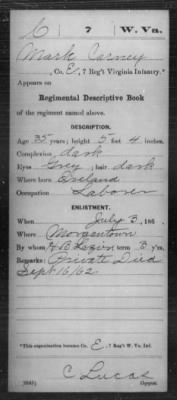 C | 7 | W. Va.
Mark Carney
, Co. E, 7 Reg't Virginia Infantry.*
Appears on
Regimental Descriptive Book
of the regiment named above.
DESCRIPTION.
Age 35 years; height 5 feet 4 inches.
Complexion dark
Eyes Grey; hair dark
Where born Ireland
Occupation Laborer
ENLISTMENT.
When July 3, 186 .
Where Morgantown
By whom term 3 y'rs.
Remarks: Private Died
Sept 16/62
*This organization became Co. E, 7 Reg't W. Va. Inf.
C Lucas
Copyist.